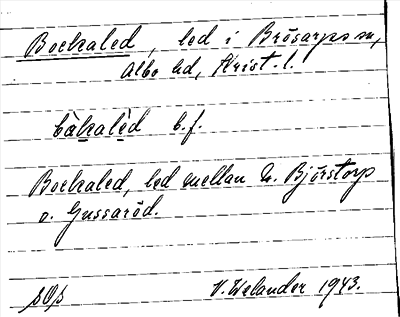 Bockaled, led i Brösarps sn,
Albo hd, Krist. l.
bȧkalèd b.f.
Bockaled, led mellan N. Björstorp
o. Gussaröd.
V. Welander 1943.